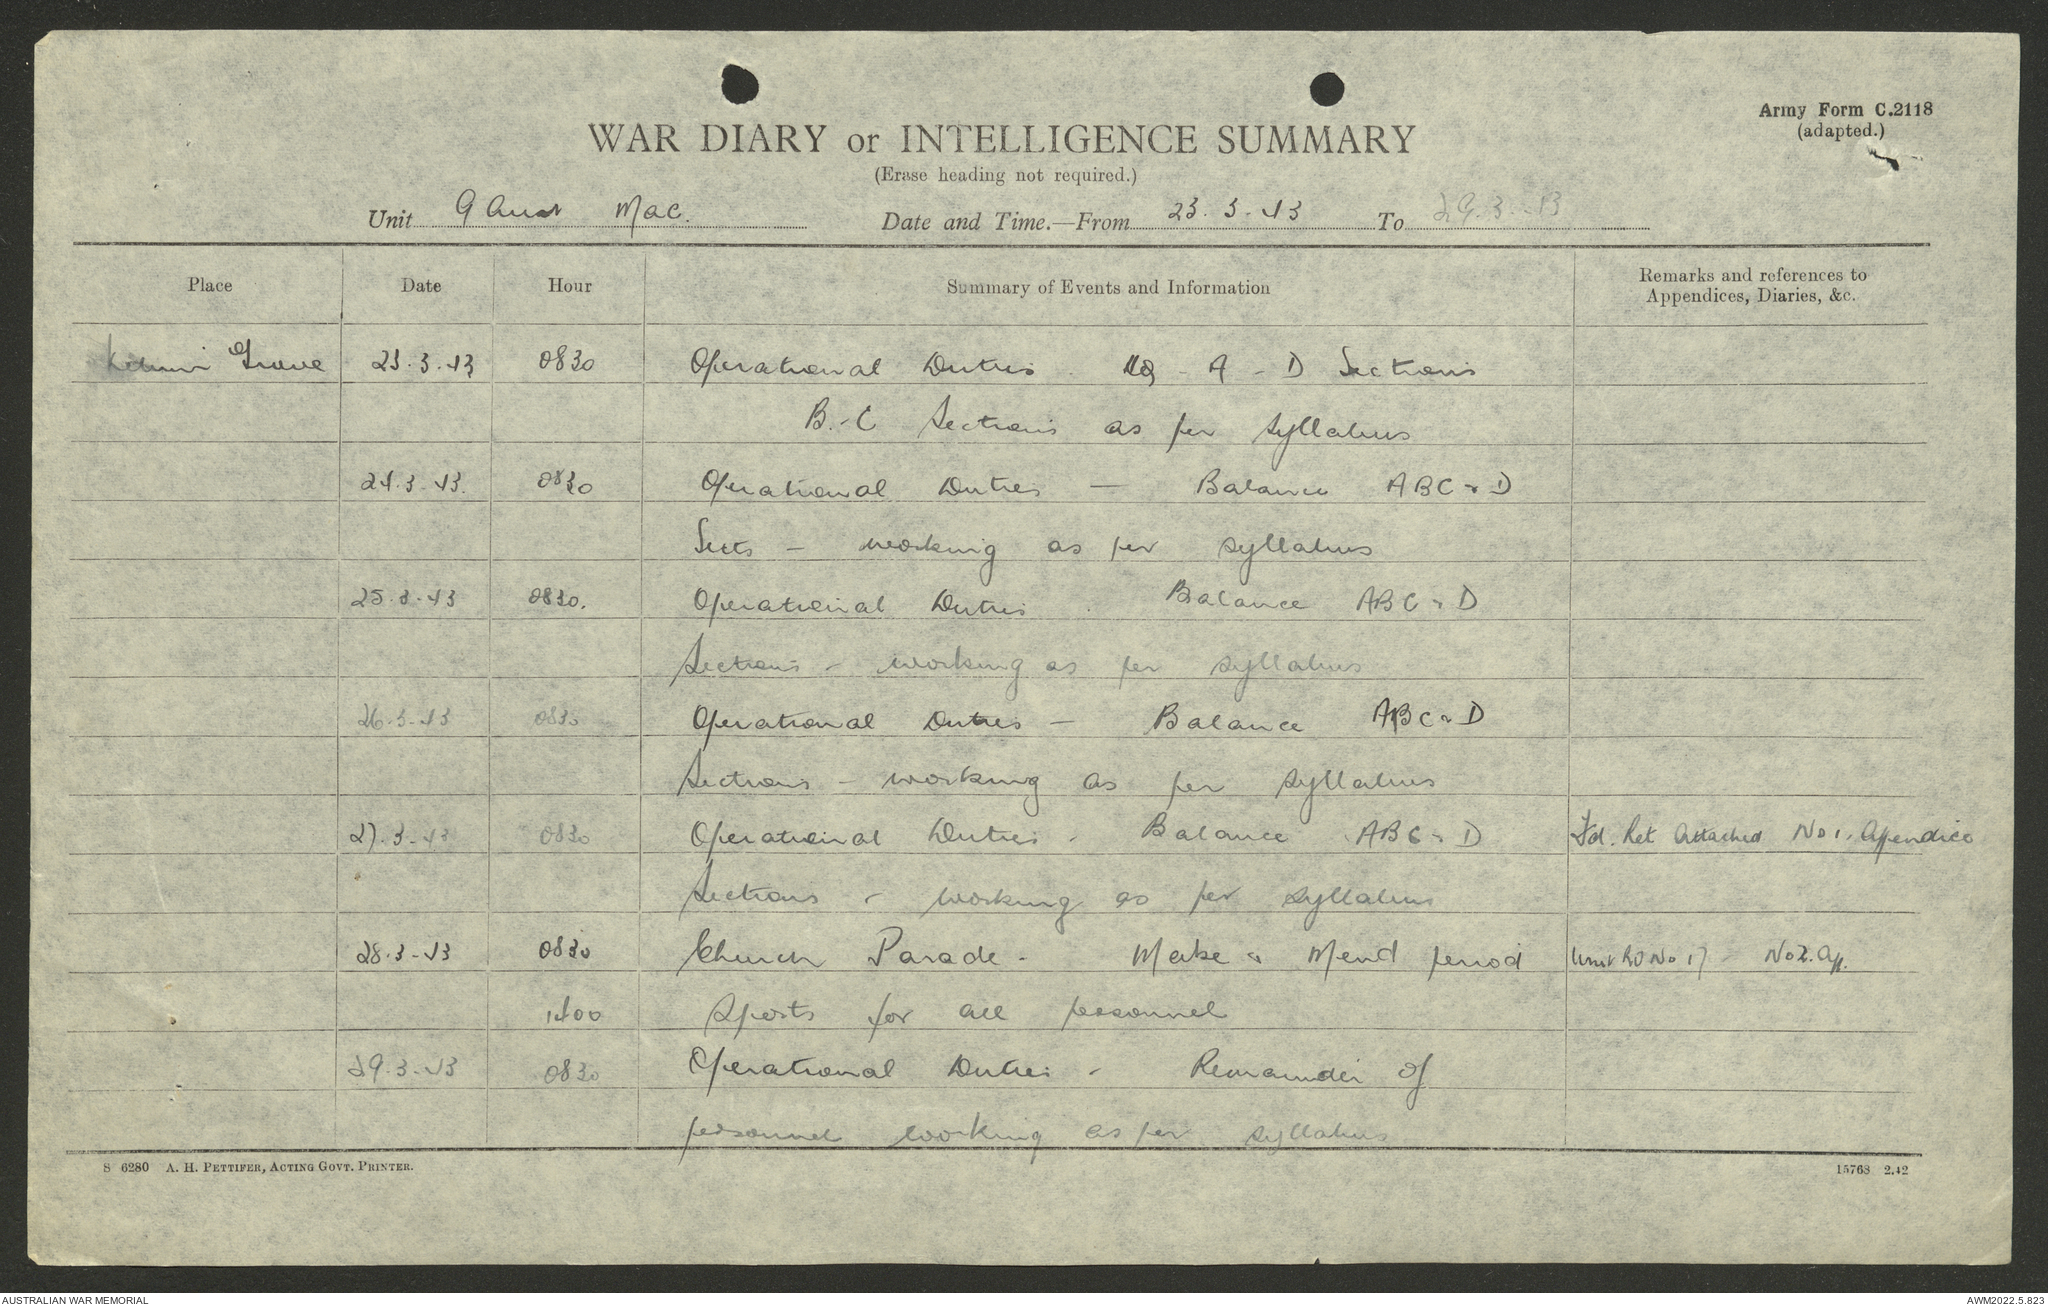 Army Form C.2118
(adapted.)
WAR DIARY or INTELLIGENCE SUMMARY
(Erase heading not required.)
Unit 9 Aust Mac. Date and Time.—From 23.3.43 To 29.3.43
Place Date Hour Summary of Events and Information Remarks and references to Appendices, Diaries, &c.
Grove 23.3.43 0830 Operational Duties. HQ - A - D Sections
B.-C Sections as per Syllabus
24.3.43. 0830 Operational Duties — Balance ABC & D
Sects - working as per syllabus
25.3.43 0830. Operational Duties. Balance ABC & D
Sections - working as per syllabus
26.3.43 0830 Operational Duties - Balance ABC & D
Sections - working as per syllabus
27.3.43 0830 Operational Duties. Balance ABC & D Fd. Ret Attached No 1. Apendice
Sections - working as per syllabus
28.3.43 0830 Church Parade - Make & Mend period Unit RO No 17 - No 2. App.
1400 Sports for all personnel
29.3.43 0830 Operational Duties - Remainder of
personnel working as per syllabus
S 6280 A. H. PETTIFER, ACTING GOVT. PRINTER.
15768 2.42
AUSTRALIAN WAR MEMORIAL
AWM2022.5.823